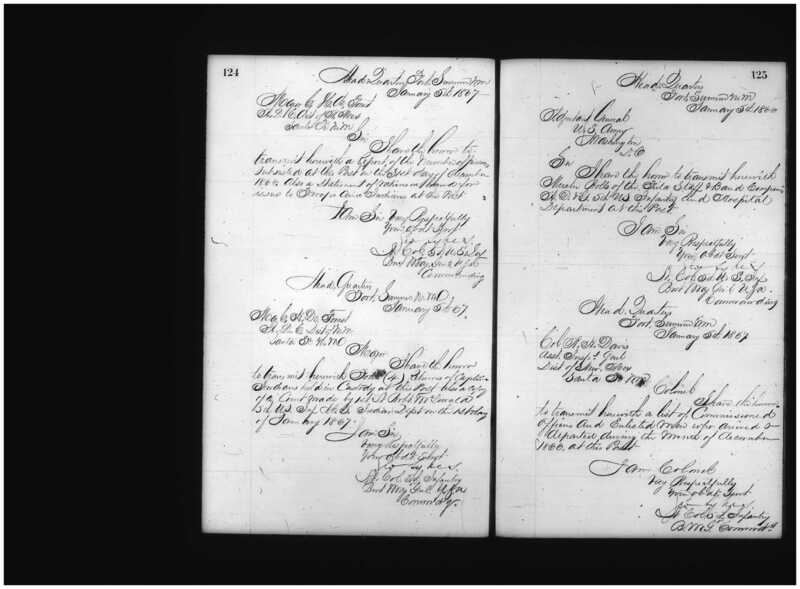 124
Head Quarters Fort Sumner N.M
January 5th 1867
Major C. H. De Forest
A. D. C. Dist of N. Mex
Santa Fe N.M.
Sir
I have the honor to
transmit herewith a report of the Number of
subsisted at the Post on the 31st day of December
1866 Also a Statement of on hand for
issue to Troops and Indians at the Post
I am Sir Very Respectfully
Your Obdt Servt
Lt Col 5th U.S. Inf
Bvt Maj Genl U.S.A.
Commanding
Head Quarters
Fort Sumner N.M.
January 5th 67.
Maj C. H. De Forest
Dist of N.M.
Santa Fe N.M.
Major
I have the honor
to transmit herewith (4) Returns of Captive
Indians held in Custody at this Post Also a Copy
of a Count made by 1st Lt Robt McDonald
5th U.S. Inf Indian Dept on the 1st day
of January 1867.
I am Sir
Very Respectfully
Your Obdt Servt
Lt Col 5th Infantry
Bvt Maj Genl U.S.A.
Commdg.
125
Head Quarters
Fort Sumner N.M
January 5th 1866
Adjutant General
U.S. Army
Washington
D.C
Sir
I have the honor to transmit herewith
Muster Rolls of the Field Staff & Band Companies
5th U.S. Infantry and Hospital
Department at this Post
I am Sir
Very Respectfully
Your Obdt Servt
Lt. Col 5th U.S. Inf
Bvt Maj Genl U.S.A.
Commanding
Head Quarters
Fort Sumner N.M
January 5th 1867
Col N. H. Davis
Asst Inspt Genl
Dist of New Mex
Santa Fe N.M.
Colonel
I have the honor
to transmit herewith a list of Commissioned
Officers and Enlisted Men who arrived &
departed during the Month of December
1866, at this Post
I am Colonel
Very Respectfully
Your Obdt Servt
Lt Col 5th Infantry
B.M.G. Commdg